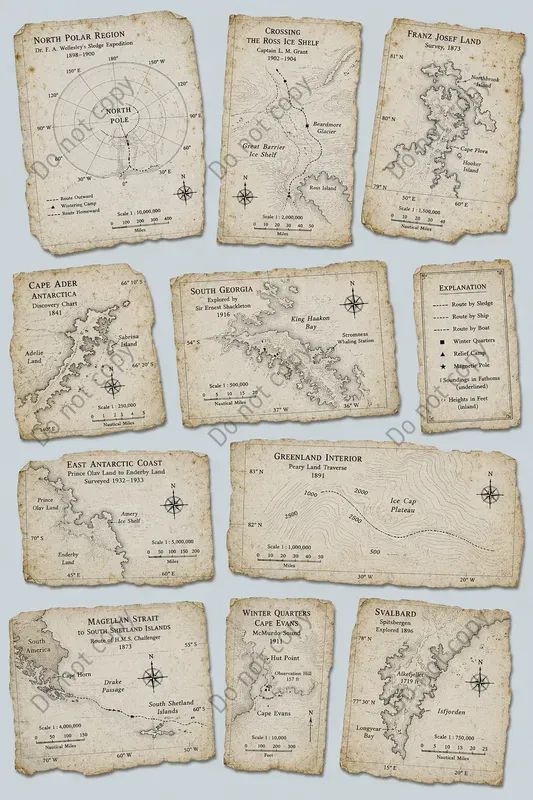 NORTH POLAR REGION
Dr. F. A. Wellesley's Sledge Expedition
1898–1900
180°
150° E
150° W
120° E
120° W
90° W
90° E
NORTH
POLE
60°
60°
30° W
0°
30° E
Route Outward
Wintering Camp
Route Homeward
Scale 1 : 10,000,000
0 100 200 300 400
Miles
Do not copy
CROSSING
THE ROSS ICE SHELF
Captain L. M. Grant
1902–1904
Beardmore
Glacier
Great Barrier
Ice Shelf
Ross Island
Scale 1 : 2,000,000
0 10 20 30 40 50
Miles
Do not copy
FRANZ JOSEF LAND
Survey, 1873
81° N
Northbrook
Island
80° N
Cape Flora
Hooker
Island
79° N
50° E
60° E
Scale 1 : 1,500,000
0 10 20 30 40
Nautical Miles
Do not copy
CAPE ADER
ANTARCTICA
Discovery Chart
1841
66° 10' S
Sabrina
Island
Adelie
Land
66° 20' S
Scale 1 : 250,000
0 1 2 3 4 5
Nautical Miles
Do not copy
SOUTH GEORGIA
Explored by
Sir Ernest Shackleton
1916
King Haakon
Bay
54° S
Stromness
Whaling Station
Scale 1 : 500,000
Nautical Miles
37° W
36° W
Do not copy
EXPLANATION
Route by Sledge
Route by Ship
Route by Boat
Winter Quarters
Relief Camp
Magnetic Pole
Soundings in Fathoms
(underlined)
Heights in Feet
(inland)
Do not copy
EAST ANTARCTIC COAST
Prince Olav Land to Enderby Land
Surveyed 1932–1933
Prince
Olav Land
Amery
Ice Shelf
70° S
Enderby
Land
Scale 1 : 5,000,000
0 50 100 150 200
Miles
45° E
60° E
GREENLAND INTERIOR
Peary Land Traverse
1891
83° N
N
1000
2000
Ice Cap
Plateau
2500
2000
82° N
500
Scale 1 : 1,000,000
0 10 20 30 40 50
Miles
30° W
20° W
MAGELLAN STRAIT
TO SOUTH SHETLAND ISLANDS
Route of H.M.S. Challenger
1873
55° S
South
America
Cape Horn
Drake
Passage
South Shetland
Islands
60° S
Scale 1 : 4,000,000
0 50 100 150
Nautical Miles
70° W
60° W
50° W
Do not copy
WINTER QUARTERS
CAPE EVANS
McMurdo Sound
1911
Hut Point
Observation Hill
157 ft
Cape Evans
Scale 1 : 10,000
0 100 200 300
Feet
Do not copy
SVALBARD
Spitsbergen
Explored 1896
78° N
Alkefjellet
1719 ft
77° 30' N
Isfjorden
Longyear
Bay
Scale 1 : 750,000
0 5 10 15 20 25
Nautical Miles
15° E
20° E
Do not copy